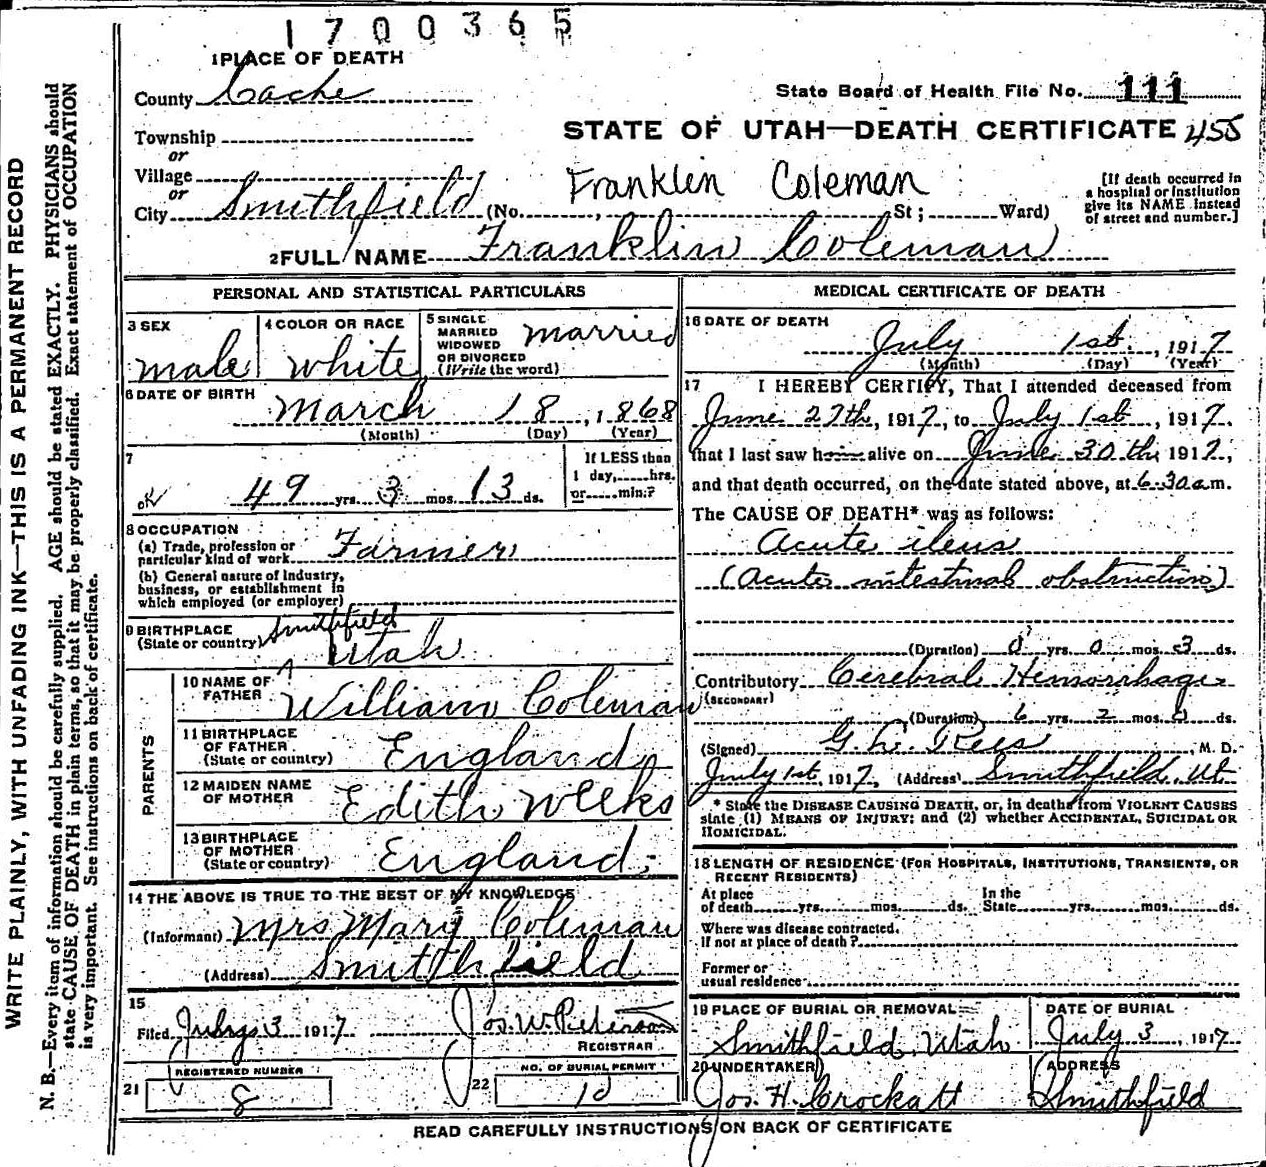 1700365
1 PLACE OF DEATH
County Cache
State Board of Health File No. 111
Township
STATE OF UTAH—DEATH CERTIFICATE 455
or
Village
or
City Smithfield (No. , St ; Ward)
Franklin Coleman
[If death occurred in
a hospital or institution
give its NAME instead
of street and number.]
2 FULL NAME Franklin Coleman
PERSONAL AND STATISTICAL PARTICULARS
3 SEX
male
4 COLOR OR RACE
white
5 SINGLE
MARRIED
WIDOWED
OR DIVORCED
(Write the word)
married
6 DATE OF BIRTH
March 18, 1868
(Month) (Day) (Year)
7
OK 49 yrs 3 mos. 13 ds.
If LESS than
1 day, hrs.
or min.?
8 OCCUPATION
(a) Trade, profession or
particular kind of work Farmer
(b) General nature of Industry,
business, or establishment in
which employed (or employer)
9 BIRTHPLACE
(State or country) Smithfield
Utah
PARENTS
10 NAME OF
FATHER William Coleman
11 BIRTHPLACE
OF FATHER
(State or country) England
12 MAIDEN NAME
OF MOTHER Edith Weeks
13 BIRTHPLACE
OF MOTHER
(State or country) England
14 THE ABOVE IS TRUE TO THE BEST OF MY KNOWLEDGE
(Informant) Mrs Mary Coleman
(Address) Smithfield
15
Filed July 3 1917 Jos. W. Peterson
REGISTRAR
REGISTERED NUMBER
21 8
NO. OF BURIAL PERMIT
22 10
MEDICAL CERTIFICATE OF DEATH
16 DATE OF DEATH
July 1st, 1917
(Month) (Day) (Year)
17 I HEREBY CERTIFY, That I attended deceased from
June 27th, 1917, to July 1st, 1917.
that I last saw him alive on June 30th 1917,
and that death occurred, on the date stated above, at 6:30 a m.
The CAUSE OF DEATH* was as follows:
Acute ileus
(Acute intestinal obstruction)
(Duration) 0 yrs. 0 mos. 3 ds.
Contributory Cerebral Hemorrhage
(SECONDARY)
(Duration) 6 yrs. 2 mos. 0 ds.
(Signed) G. L. Rees, M. D.
July 1st, 1917, (Address) Smithfield, Ut
* State the DISEASE CAUSING DEATH, or, in deaths from VIOLENT CAUSES
state (1) MEANS OF INJURY; and (2) whether ACCIDENTAL, SUICIDAL OR
HOMICIDAL.
18 LENGTH OF RESIDENCE (FOR HOSPITALS, INSTITUTIONS, TRANSIENTS, OR
RECENT RESIDENTS)
At place In the
of death yrs. mos. ds. State yrs. mos. ds.
Where was disease contracted.
If not at place of death?
Former or
usual residence
19 PLACE OF BURIAL OR REMOVAL
Smithfield, Utah
DATE OF BURIAL
July 3, 1917
20 UNDERTAKER
Jos. H. Crockatt
(ADDRESS
Smithfield
READ CAREFULLY INSTRUCTIONS ON BACK OF CERTIFICATE
WRITE PLAINLY, WITH UNFADING INK—THIS IS A PERMANENT RECORD
N. B.—Every item of information should be carefully supplied. AGE should be stated EXACTLY. PHYSICIANS should
state CAUSE OF DEATH in plain terms, so that it may be properly classified. Exact statement of OCCUPATION
is very important. See instructions on back of certificate.